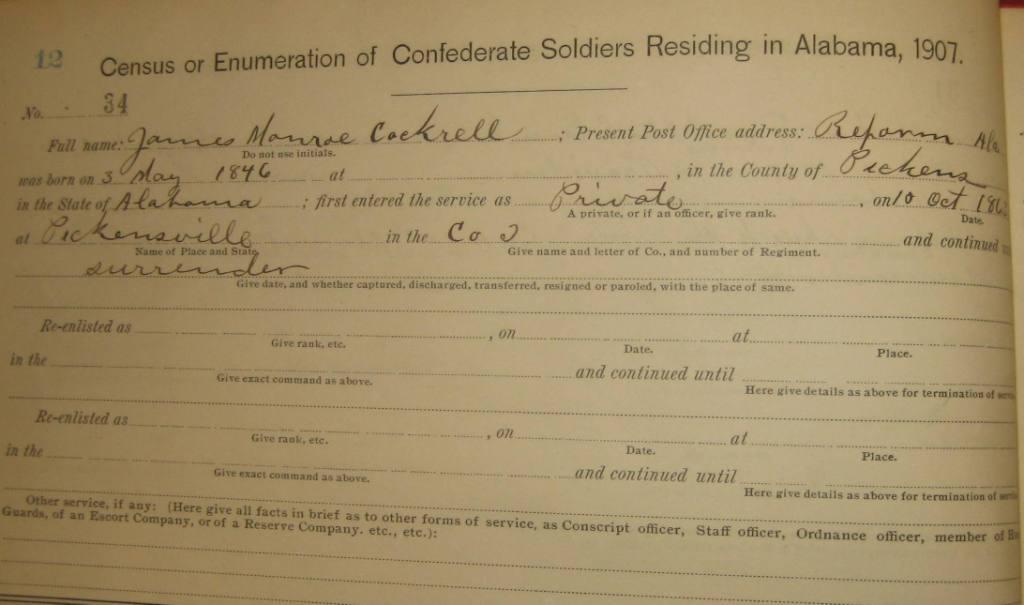 12 Census or Enumeration of Confederate Soldiers Residing in Alabama, 1907.
No. 34
Full name: James Monroe Cockrell ; Present Post Office address: Reform Ala
Do not use initials.
was born on 3 May 1846 at , in the County of Pickens
in the State of Alabama ; first entered the service as Private , on 10 Oct 186
A private, or if an officer, give rank. Date.
at Pickensville in the Co and continued
Name of Place and State. Give name and letter of Co., and number of Regiment.
surrender
Give date, and whether captured, discharged, transferred, resigned or paroled, with the place of same.
Re-enlisted as , on at
Give rank, etc. Date. Place.
in the and continued until
Give exact command as above. Here give details as above for termination of
Re-enlisted as , on at
Give rank, etc. Date. Place.
in the and continued until
Give exact command as above. Here give details as above for termination of
Other service, if any: (Here give all facts in brief as to other forms of service, as Conscript officer, Staff officer, Ordnance officer, member of
Guards, of an Escort Company, or of a Reserve Company. etc., etc.):